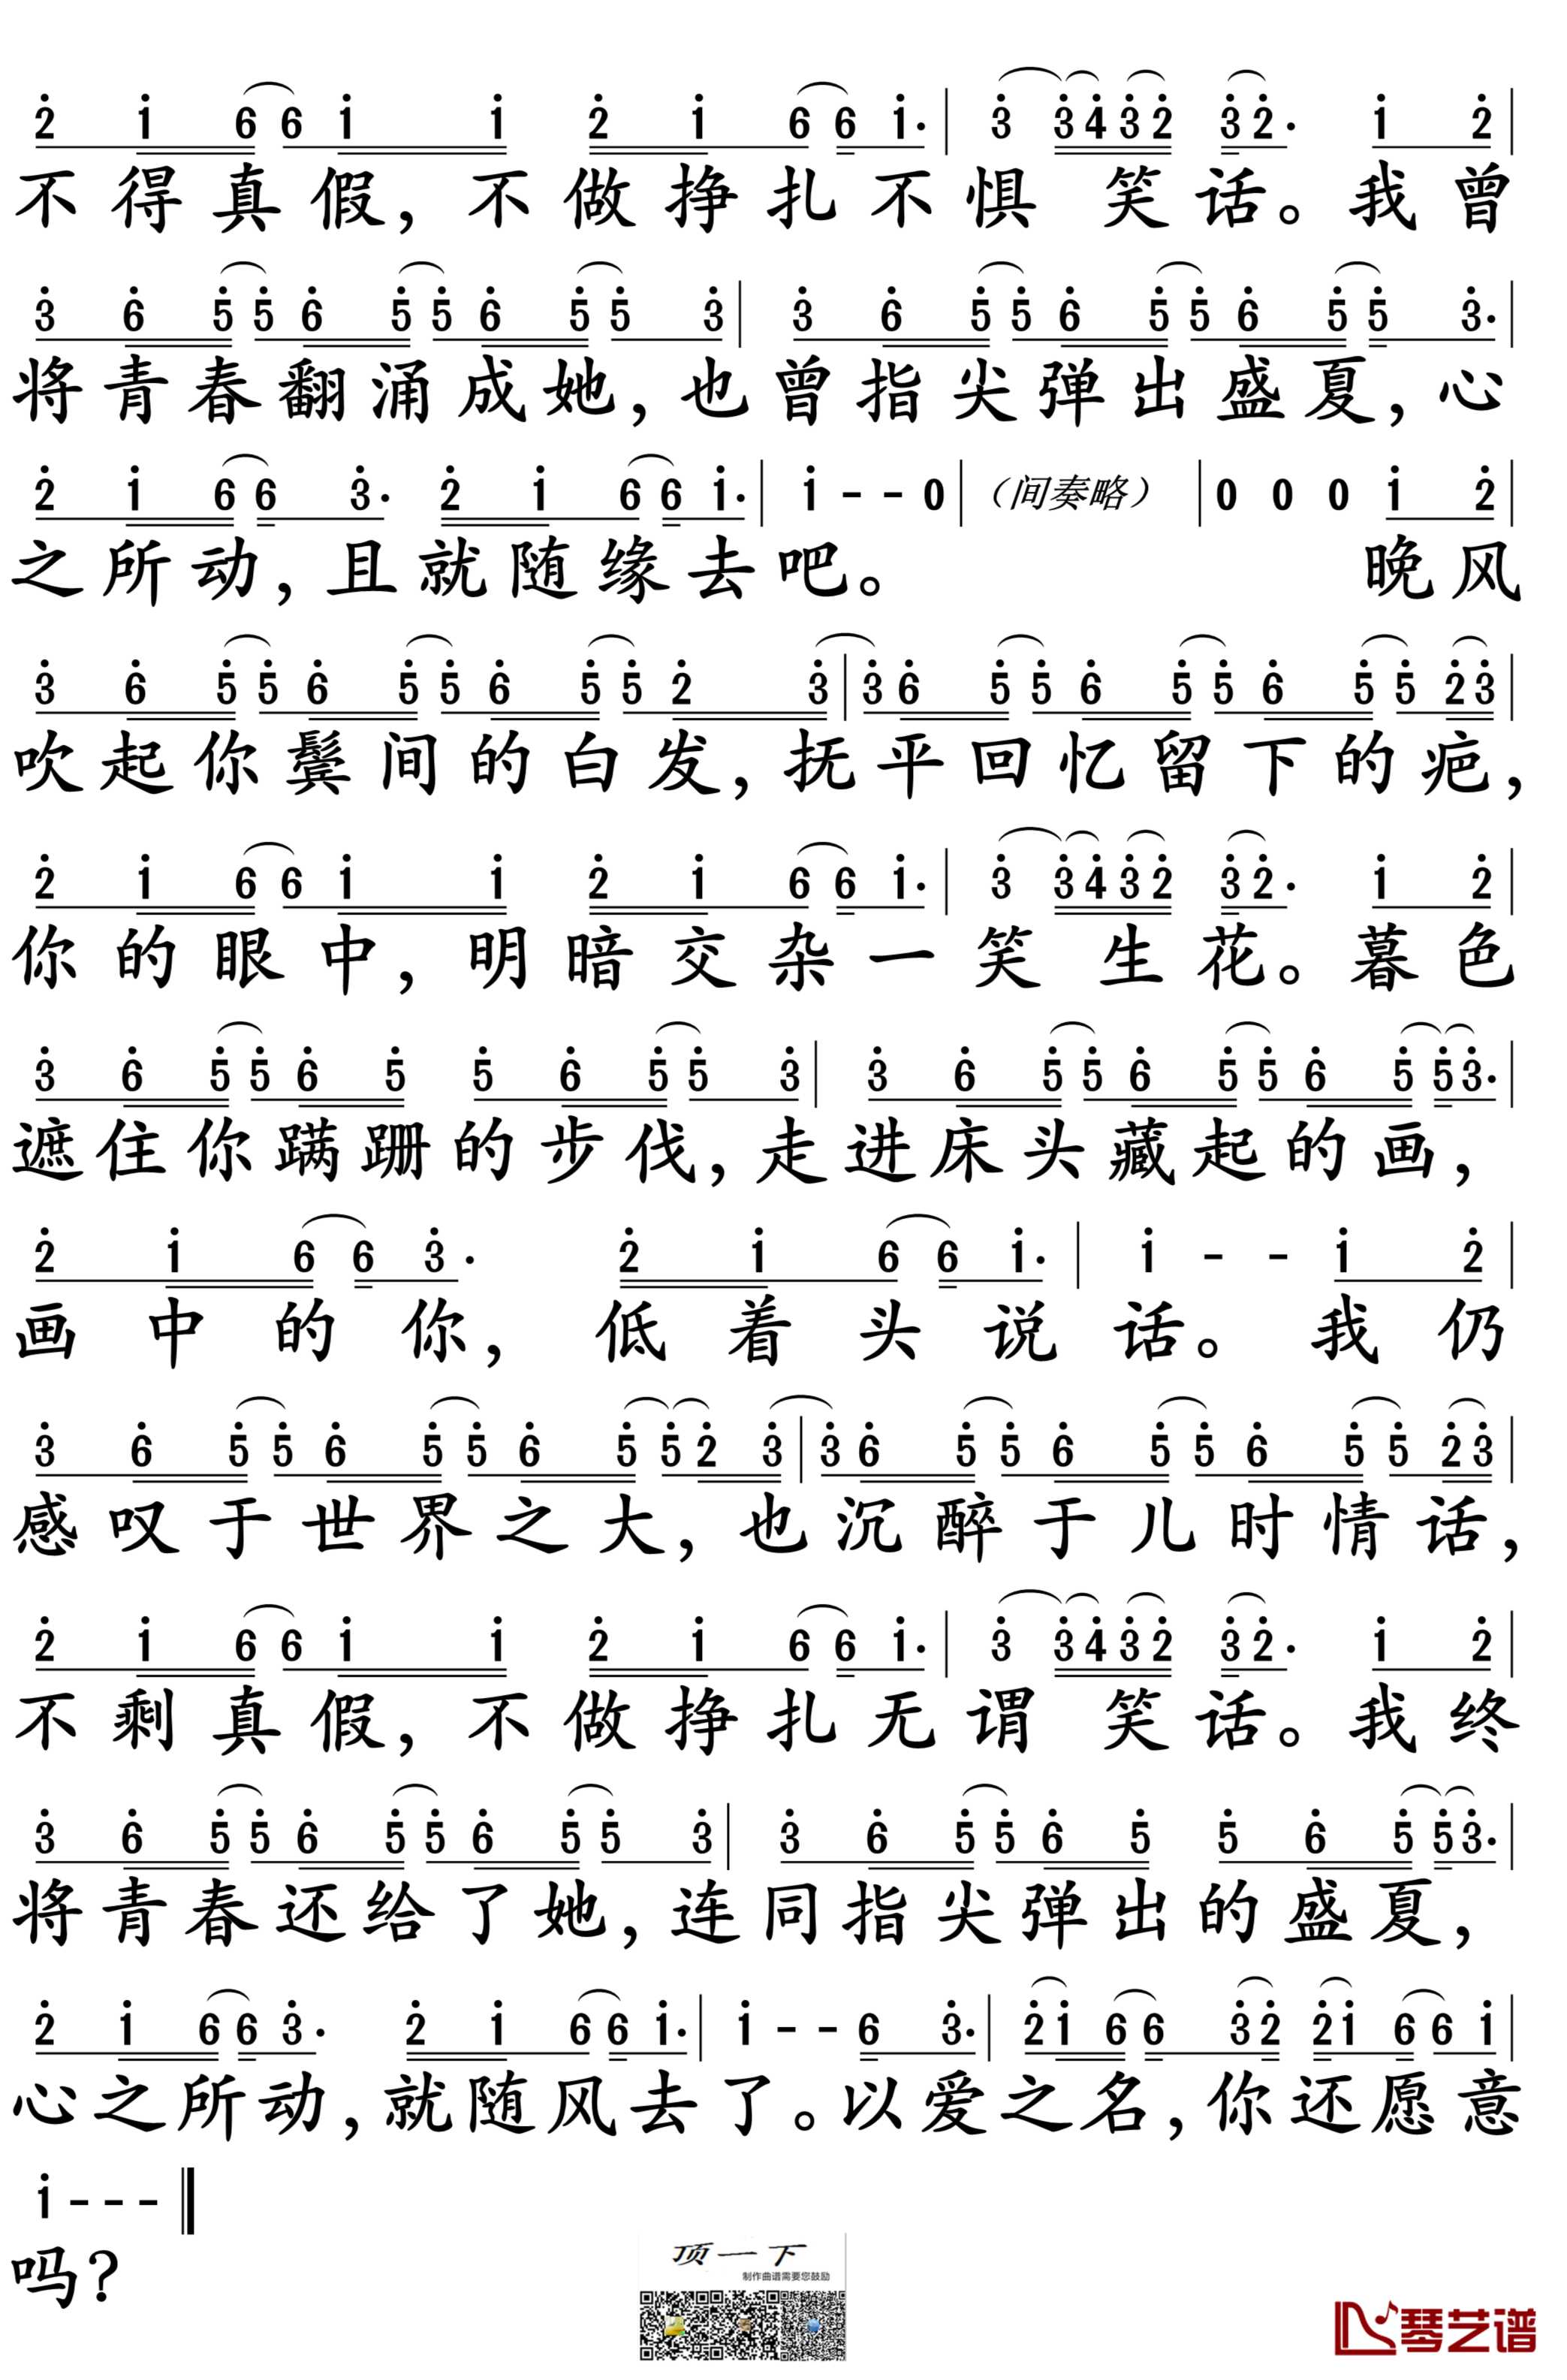 2̇ 1̇ 6 6 1̇ 1̇ 2̇ 1̇ 6 6 1̇· | 3̇ 3̇ 4̇ 3̇ 2̇ 3̇ 2̇· 1̇ 2̇ |
不得真假，不做挣扎不惧笑话。我曾
3̇ 6̇ 5̇ 5̇ 6̇ 5̇ 5̇ 6̇ 5̇ 5̇ 3̇ | 3̇ 6̇ 5̇ 5̇ 6̇ 5̇ 5̇ 6̇ 5̇ 5̇ 3̇· |
将青春翻涌成她，也曾指尖弹出盛夏，心
2̇ 1̇ 6 6 3̇· 2̇ 1̇ 6 6 1̇· | 1̇ - - 0 | （间奏略） | 0 0 0 1̇ 2̇ |
之所动，且就随缘去吧。 晚风
3̇ 6̇ 5̇ 5̇ 6̇ 5̇ 5̇ 6̇ 5̇ 5̇ 2̇ 3̇ | 3̇ 6̇ 5̇ 5̇ 6̇ 5̇ 5̇ 6̇ 5̇ 5̇ 2̇ 3̇ |
吹起你鬓间的白发，抚平回忆留下的疤，
2̇ 1̇ 6 6 1̇ 1̇ 2̇ 1̇ 6 6 1̇· | 3̇ 3̇ 4̇ 3̇ 2̇ 3̇ 2̇· 1̇ 2̇ |
你的眼中，明暗交杂一笑生花。暮色
3̇ 6̇ 5̇ 5̇ 6̇ 5̇ 5̇ 6̇ 5̇ 5̇ 3̇ | 3̇ 6̇ 5̇ 5̇ 6̇ 5̇ 5̇ 6̇ 5̇ 5̇ 3̇· |
遮住你蹒跚的步伐，走进床头藏起的画，
2̇ 1̇ 6 6 3̇· 2̇ 1̇ 6 6 1̇· | 1̇ - - 1̇ 2̇ |
画中的你，低着头说话。我仍
3̇ 6̇ 5̇ 5̇ 6̇ 5̇ 5̇ 6̇ 5̇ 5̇ 2̇ 3̇ | 3̇ 6̇ 5̇ 5̇ 6̇ 5̇ 5̇ 6̇ 5̇ 5̇ 2̇ 3̇ |
感叹于世界之大，也沉醉于儿时情话，
2̇ 1̇ 6 6 1̇ 1̇ 2̇ 1̇ 6 6 1̇· | 3̇ 3̇ 4̇ 3̇ 2̇ 3̇ 2̇· 1̇ 2̇ |
不剩真假，不做挣扎无谓笑话。我终
3̇ 6̇ 5̇ 5̇ 6̇ 5̇ 5̇ 6̇ 5̇ 5̇ 3̇ | 3̇ 6̇ 5̇ 5̇ 6̇ 5̇ 5̇ 6̇ 5̇ 5̇ 3̇· |
将青春还给了她，连同指尖弹出的盛夏，
2̇ 1̇ 6 6 3̇· 2̇ 1̇ 6 6 1̇· | 1̇ - - 6 3̇· | 2̇ 1̇ 6 6 3̇ 2̇ 2̇ 1̇ 6 6 1̇ |
心之所动，就随风去了。以爱之名，你还愿意
1̇ - - - ‖
吗？
顶一下
制作曲谱需要您鼓励
琴艺谱